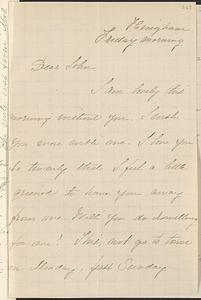 Hingham
Friday morning
Dear John
I am lonely this
morning without you. I wish
you were with me. I love you
so tenderly that I feel a little
grieved to have you away
from me. Will you do something
for me? That not go to town
on Monday, first Sunday